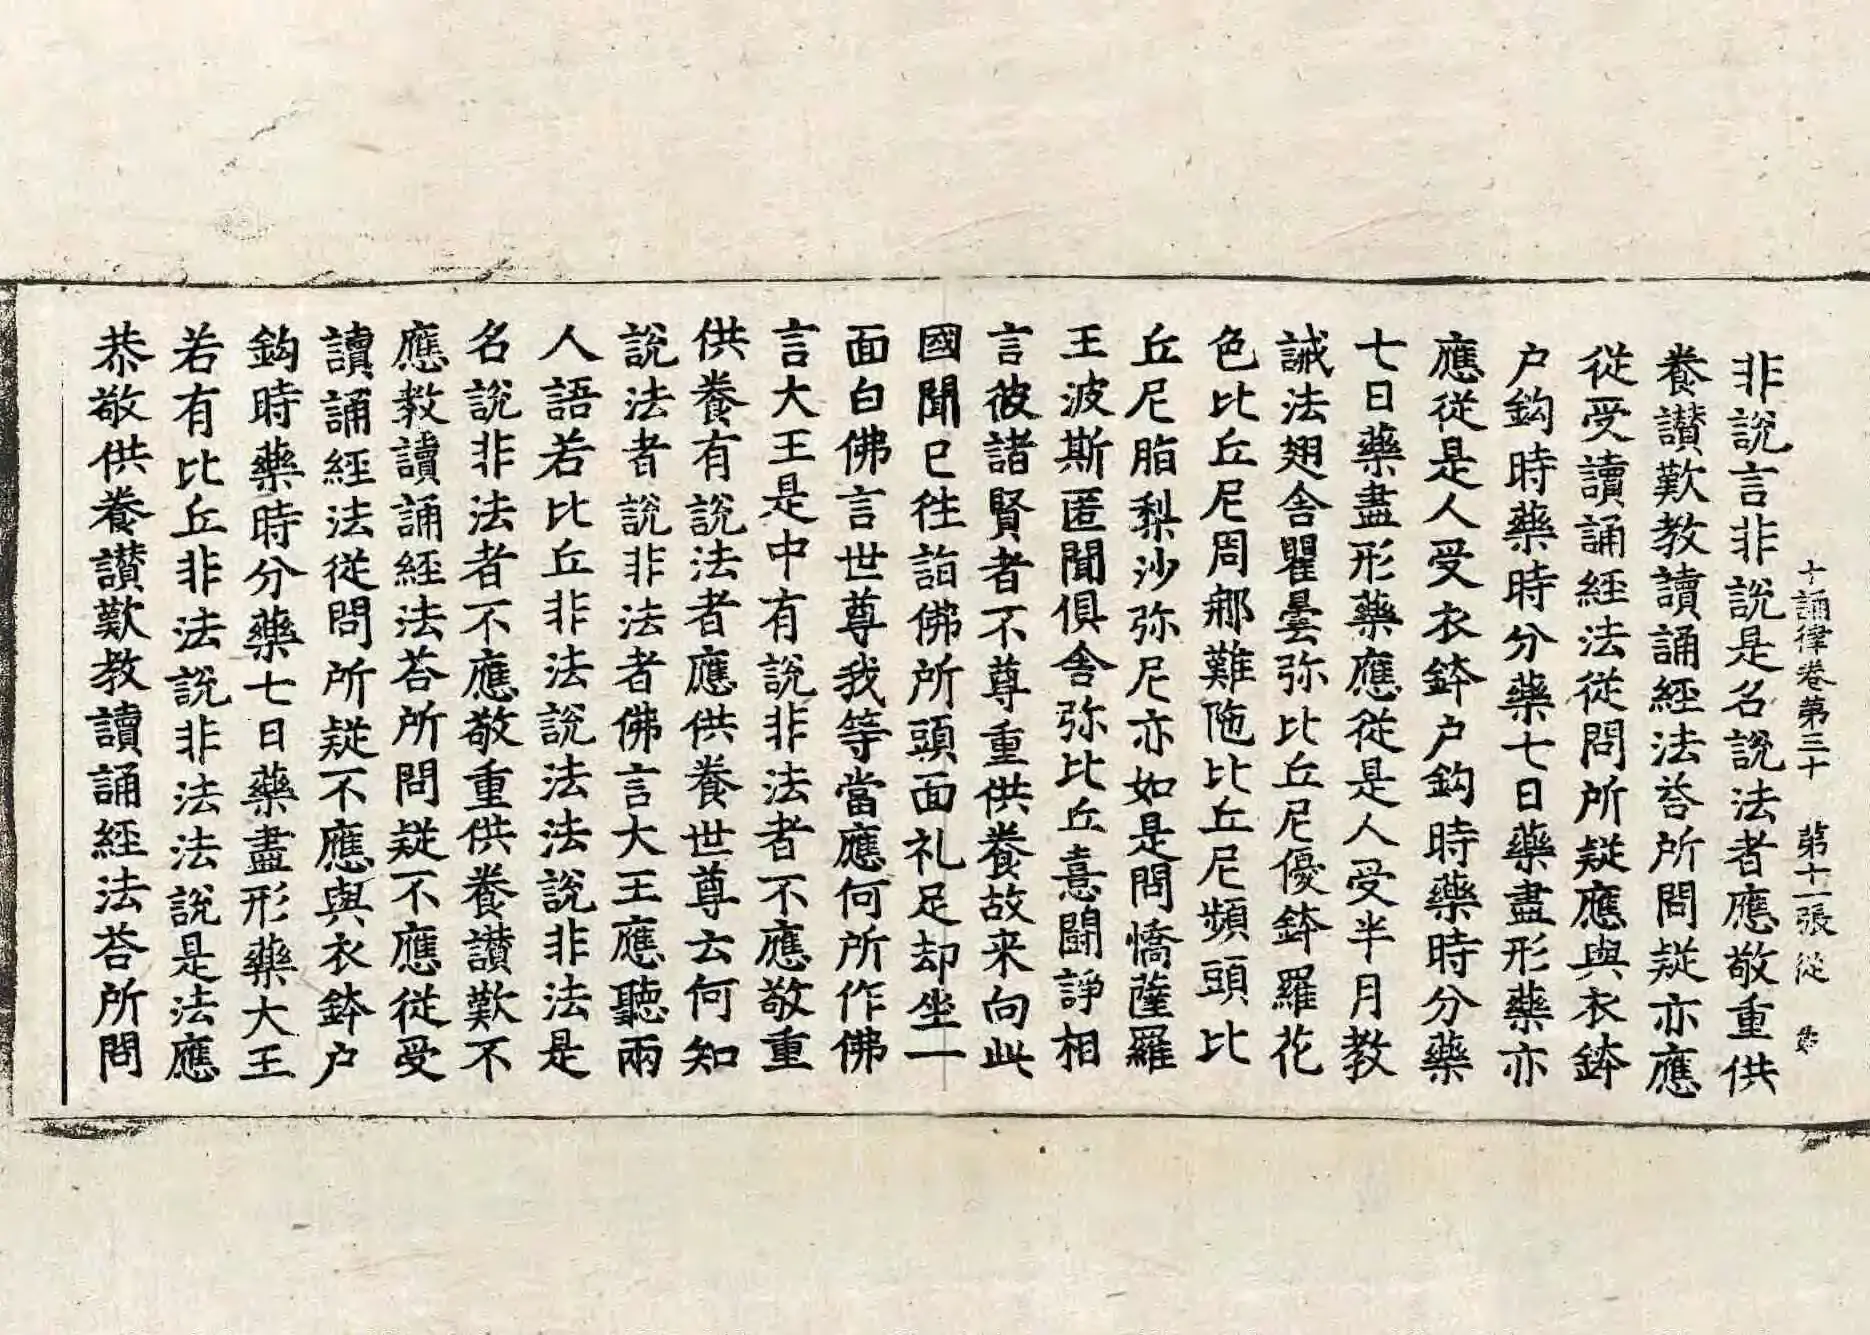 十誦律卷第三十　第十一張　從
非說言非說是名說法者應敬重供
養讃歎教讀誦經法荅所問疑亦應
從受讀誦經法從問所疑應與衣鉢
户鈎時藥時分藥七日藥盡形藥亦
應從是人受衣鉢户鈎時藥時分藥
七日藥盡形藥應從是人受半月教
誡法翅舎瞿曇弥比丘尼優鉢羅花
色比丘尼周那難陁比丘尼頻頭比
丘尼脂梨沙弥尼亦如是問憍薩羅
王波斯匿聞俱舎弥比丘憙鬪諍相
言彼諸賢者不尊重供養故来向此
國聞已往詣佛所頭面礼足却坐一
面白佛言世尊我等當應何所作佛
言大王是中有說非法者不應敬重
供養有說法者應供養世尊云何知
說法者說非法者佛言大王應聽兩
人語若比丘非法說法法說非法是
名說非法者不應敬重供養讃歎不
應教讀誦經法荅所問疑不應從受
讀誦經法從問所疑不應與衣鉢户
鈎時藥時分藥七日藥盡形藥大王
若有比丘非法說非法法說是法應
恭敬供養讃歎教讀誦經法荅所問